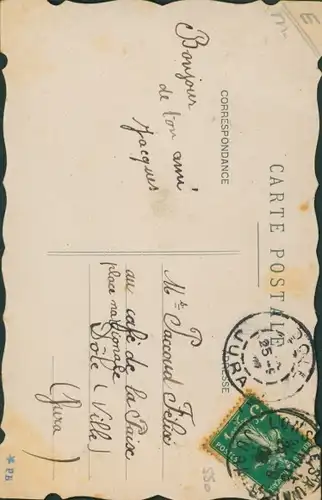 CARTE POSTALE
CORRESPONDANCE
ADRESSE
Bonjour
de ton ami
Jacques
Mr Paccoud Félix
au café de la Paix
place nationale
Dôle (Ville)
(Jura)
DOLE
25
JURA
* PB
E